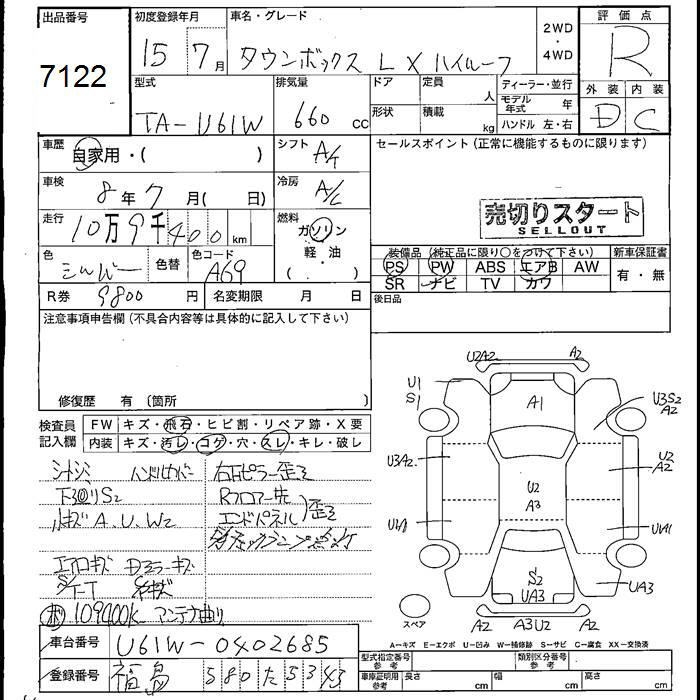 出品番号 初度登録年月 車名・グレード 2WD ・ 4WD 評価点
7122 15 7月 タウンボックス LX ハイルーフ R
型式 排気量 ドア 定員 人 ディーラー・並行 外装 内装
TA-U61W 660 cc 形状 積載 kg モデル年式 年 ハンドル 左・右 D C
車歴 自家用・( ) シフト A/T セールスポイント (正常に機能するものに限ります)
車検 8年7月( 日) 冷房 A/C
売切りスタート
SELLOUT
走行 10万9千400km 燃料 ガソリン 軽・油 ( . )
色 シルバー 色替 色コード A69
装備品 (純正品に限り○をつけて下さい) 新車保証書
PS PW ABS エアB AW 有・無
SR ナビ TV カワ
R券 9800円 名変期限 月 日 後日品
注意事項申告欄(不具合内容等は具体的に記入して下さい)
修復歴 有 (箇所
検査員記入欄 FW キズ・飛石・ヒビ割・リペア跡・X要
内装 キズ・汚レ・コゲ・穴・スレ・キレ・破レ
ハンドルカバー 右Bピラー歪
下回りS2 Rフロアー先
小キズA.U.W2 エンドパネル 歪
エアロキズ Dミラーキズ
S/T-T
109400K アンテナ曲り
車台番号 U61W-0402685
登録番号 福島 580 た 5343
U2A2 A2
U1 S1 A1 U3S2 A2
U3A2 U2 A3 U2 A2
U1A1 U1A1
S2 UA3 UA3
スペア A2 A3U2 A2
A-キズ E-エクボ U-凹み W-補修跡 S-サビ C-腐食 XX-交換済
型式指定番号 参考 類別区分番号 参考
車庫証明用 参考 長さ cm 幅 cm 高さ cm